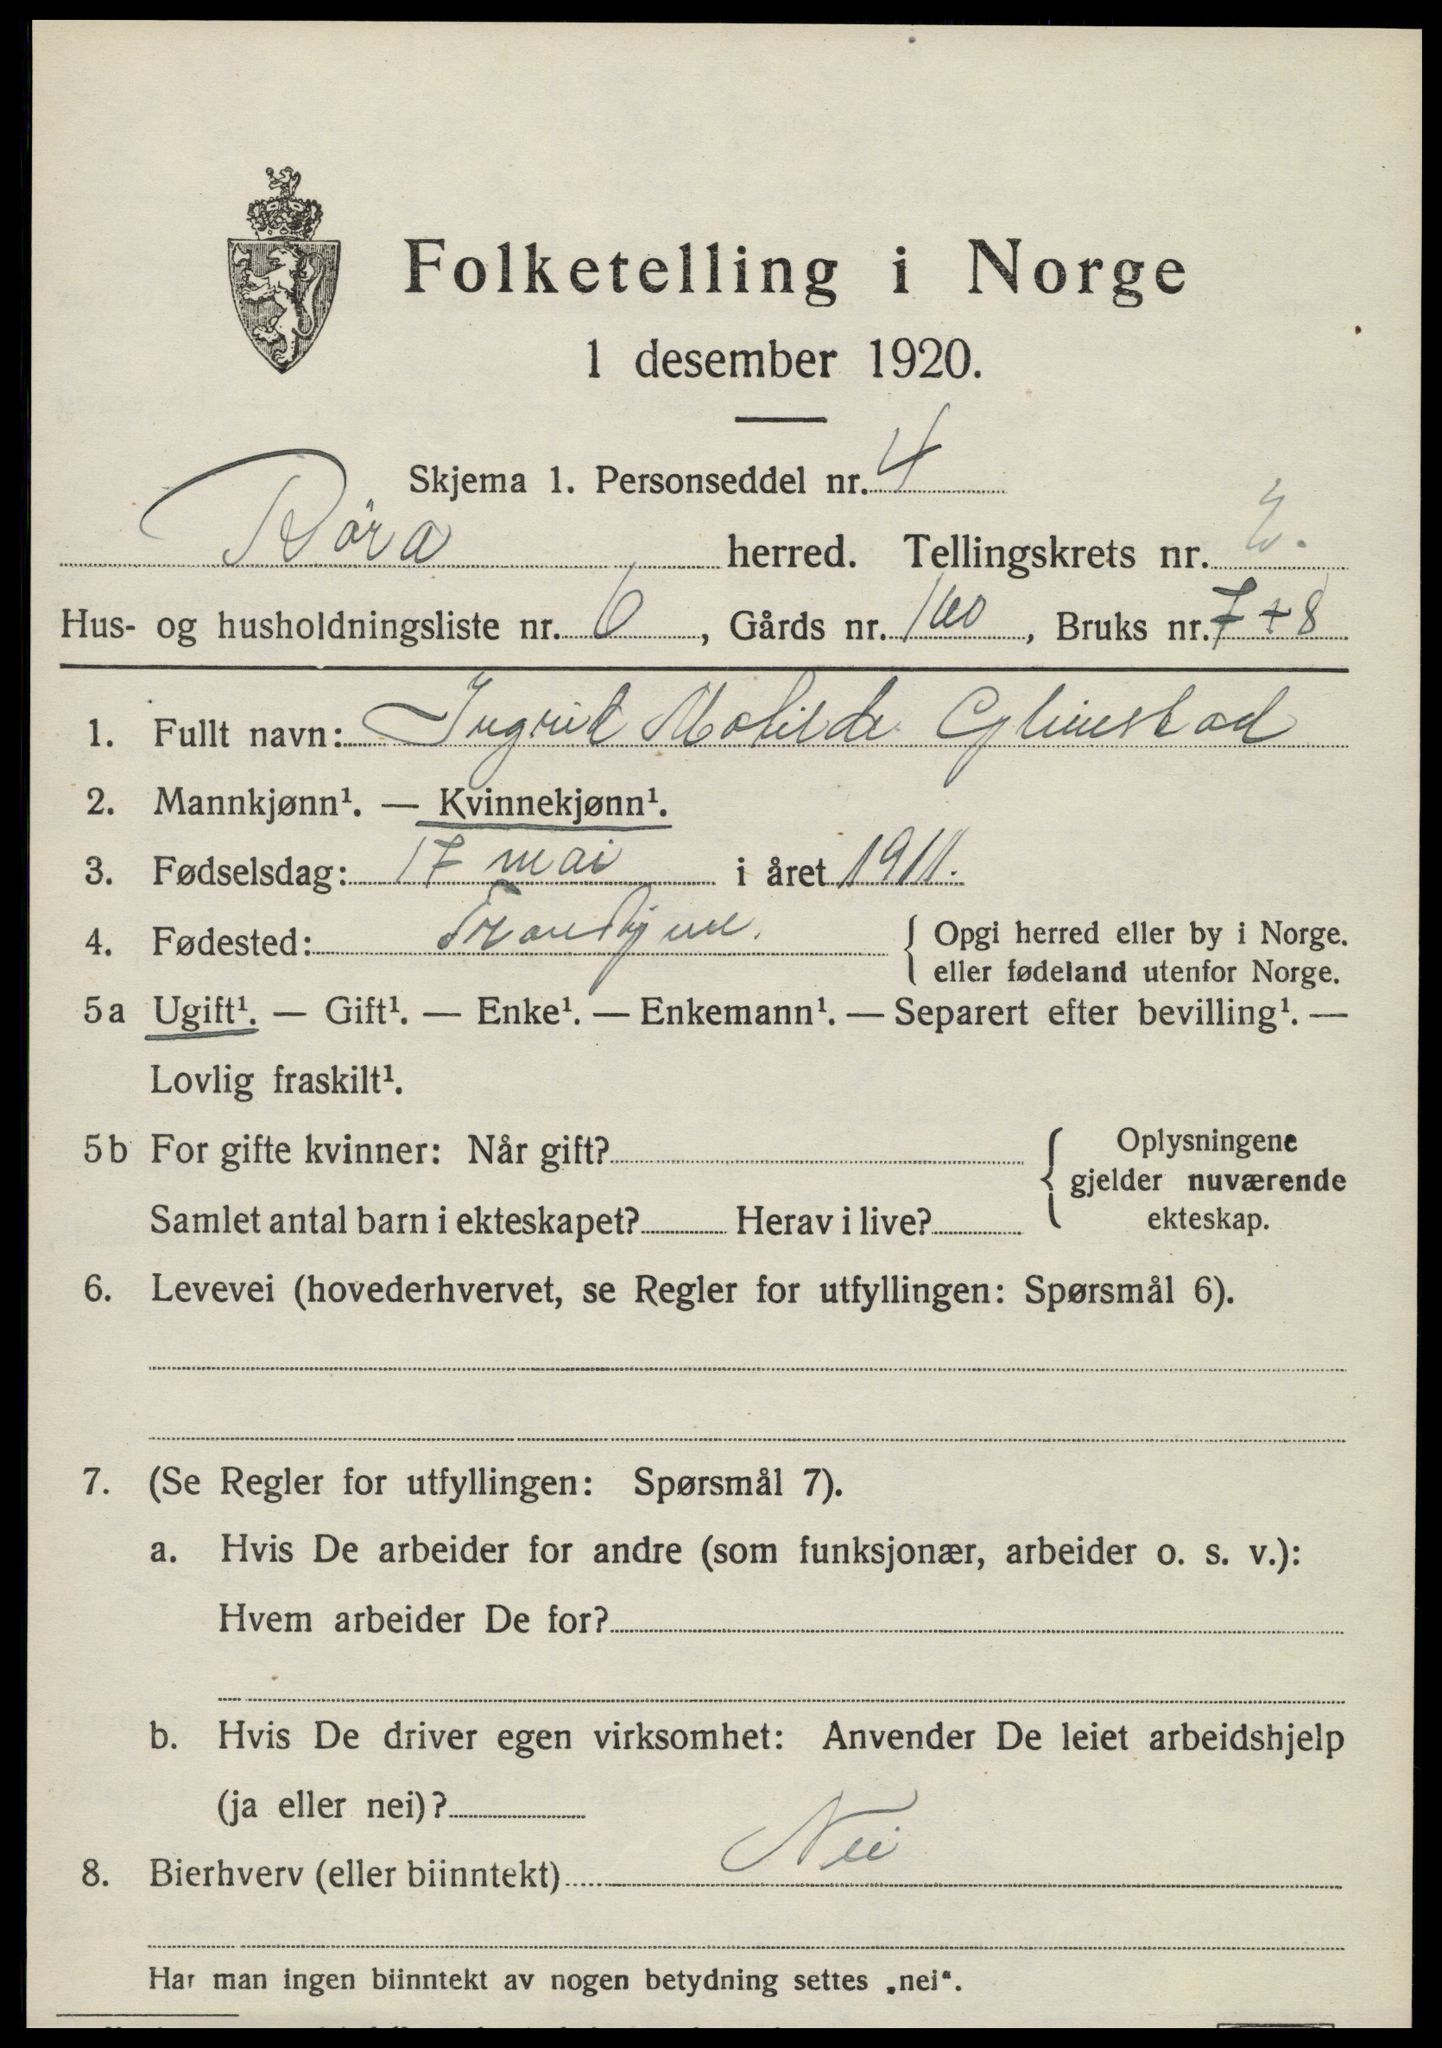 Folketelling i Norge
1 desember 1920.
Skjema 1. Personseddel nr. 4
Röra herred. Tellingskrets nr. 2.
Hus- og husholdningsliste nr. 6, Gårds nr. 100, Bruks nr. 7 + 8
1. Fullt navn: Ingrid Matilde Glimstad
2. Mannkjønn¹. — Kvinnekjønn¹.
3. Fødselsdag: 17 mai i året 1911.
4. Fødested: { Opgi herred eller by i Norge.
eller fødeland utenfor Norge.
5a Ugift¹. — Gift¹. — Enke¹. — Enkemann¹. — Separert efter bevilling¹. —
Lovlig fraskilt¹.
5b For gifte kvinner: Når gift? { Oplysningene
gjelder nuværende
Samlet antal barn i ekteskapet? Herav i live? ekteskap.
6. Levevei (hovederhvervet, se Regler for utfyllingen: Spørsmål 6).
7. (Se Regler for utfyllingen: Spørsmål 7).
a. Hvis De arbeider for andre (som funksjonær, arbeider o. s. v.):
Hvem arbeider De for?
b. Hvis De driver egen virksomhet: Anvender De leiet arbeidshjelp
(ja eller nei)?
8. Bierhverv (eller biinntekt) Nei
Har man ingen biinntekt av nogen betydning settes „nei“.